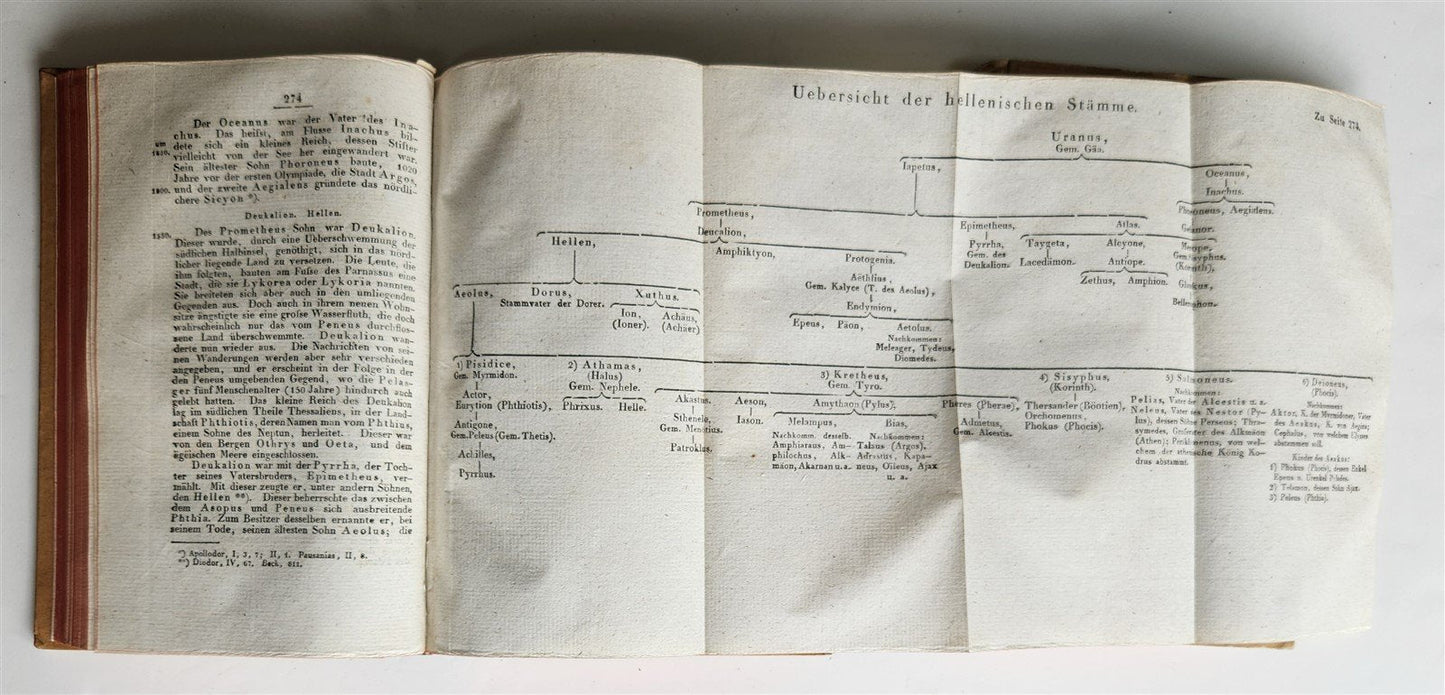 274
Der Oceanus war der Vater des Ina-
chus. Das heifst, am Flusse Inachus bil-
um dete sich ein kleines Reich, dessen Stifter
1850. vielleicht von der See her eingewandert war.
Sein ältester Sohn Phoroneus baute, 1020
Jahre vor der ersten Olympiade, die Stadt Argos,
1800. und der zweite Aegialeus gründete das nördli-
chere Sicyon *).
Deukalion. Hellen.
1550. Des Prometheus Sohn war Deukalion.
Dieser wurde, durch eine Ueberschwemmung der
südlichen Halbinsel, genöthigt, sich in das nörd-
licher liegende Land zu versetzen. Die Leute, die
ihm folgten, bauten am Fufse des Parnassus eine
Stadt, die sie Lykorea oder Lykoria nannten.
Sie breiteten sich aber auch in den umliegenden
Gegenden aus. Doch auch in ihrem neuen Wohn-
sitze ängstigte sie eine grofse Wasserfluth, die doch
wahrscheinlich nur das vom Peneus durchflos-
sene Land überschwemmte. Deukalion wan-
derte nun wieder aus. Die Nachrichten von sei-
nen Wanderungen werden aber sehr verschieden
angegeben, und er erscheint in der Folge in der
den Peneus umgebenden Gegend, wo die Pelas-
ger fünf Menschenalter (150 Jahre) hindurch auch
gelebt hatten. Das kleine Reich des Deukalion
lag im südlichen Theile Thessaliens, in der Land-
schaft Phthiotis, deren Namen man vom Phthius,
einem Sohne des Neptun, herleitet. Dieser war
von den Bergen Othrys und Oeta, und dem
ägeischen Meere eingeschlossen.
Deukalion war mit der Pyrrha, der Toch-
ter seines Vatersbruders, Epimetheus, ver-
mählt. Mit dieser zeugte er, unter andern Söhnen,
den Hellen **). Dieser beherrschte das zwischen
dem Asopus und Peneus sich ausbreitende
Phthia. Zum Besitzer desselben ernannte er, bei
seinem Tode, seinen ältesten Sohn Aeolus; die
*) Apollodor, I, 3, 7; II, 1. Pausanias, II,
**) Diodor, IV, 67. Beck, 811.
Uebersicht der hellenischen Stämme.
Zu Seite 274.
Uranus,
Gem. Gäa.
Iapetus,
Oceanus,
Inachus.
Prometheus,
Phoroneus, Aegialeus.
Deucalion,
Epimetheus,
Atlas.
Hellen,
Amphiktyon,
Protogenia.
Pyrrha,
Gem. des
Deukalion.
Taygeta,
Lacedämon.
Alcyone,
Antiope.
Zethus, Amphion.
Merope,
Gem. Sisyphus.
(Korinth),
Glaukus,
Bellerophon.
Aëthlius,
Gem. Kalyce (T. des Aeolus),
Endymion,
Epeus, Päon, Aetolus.
Nachkommen:
Meleager, Tydeus,
Diomedes.
Aeolus,
Dorus,
Stammvater der Dorer.
Xuthus.
Ion,
(Ioner).
Achäus,
(Achäer)
1) Pisidice,
Gem. Myrmidon.
Actor,
Eurytion (Phthiotis),
Antigone,
Gem. Peleus (Gem. Thetis).
Achilles,
Pyrrhus.
2) Athamas,
(Halus)
Gem. Nephele.
Phrixus. Helle.
3) Kretheus,
Gem. Tyro.
Akastus.
Sthenele,
Gem. Menötius.
Patroklus.
Aeson,
Iason.
Amythaon (Pylus),
Melampus,
Nachkomm. desselb.
Amphiaraus, Am-
philochus, Alk-
mäon, Akarnan u. a.
Bias,
Nachkommen:
Talaus (Argos).
Adrastus, Kapa-
neus, Oileus, Ajax
u. a.
Pheres (Pherae),
Admetus,
Gem. Alcestis.
4) Sisyphus,
(Korinth).
Thersander (Böotien).
Orchomenus,
Phokus (Phocis).
5) Salmoneus.
Pelias, Vater der Alcestis u. a.
Neleus, Vater des Nestor (Py-
lus), dessen Söhne Perseus; Thra-
symedes, Grofsvater des Alkmäon
(Athen); Periklimenus, von wel-
chem der athenische König Ko-
drus abstammt.
6) Deioneus,
(Phocis).
Nachkommen:
Aktor, K. der Myrmidoner, Vater
des Aeakus, K. von Aegina;
Cephalus, von welchem Ulysses
abstammen soll.
Kinder des Aeakus:
1) Phokus (Phocis), dessen Enkel
Epeus u. Urenkel
2) Telamon, dessen Sohn Ajax.
3) Peleus (Phthia).